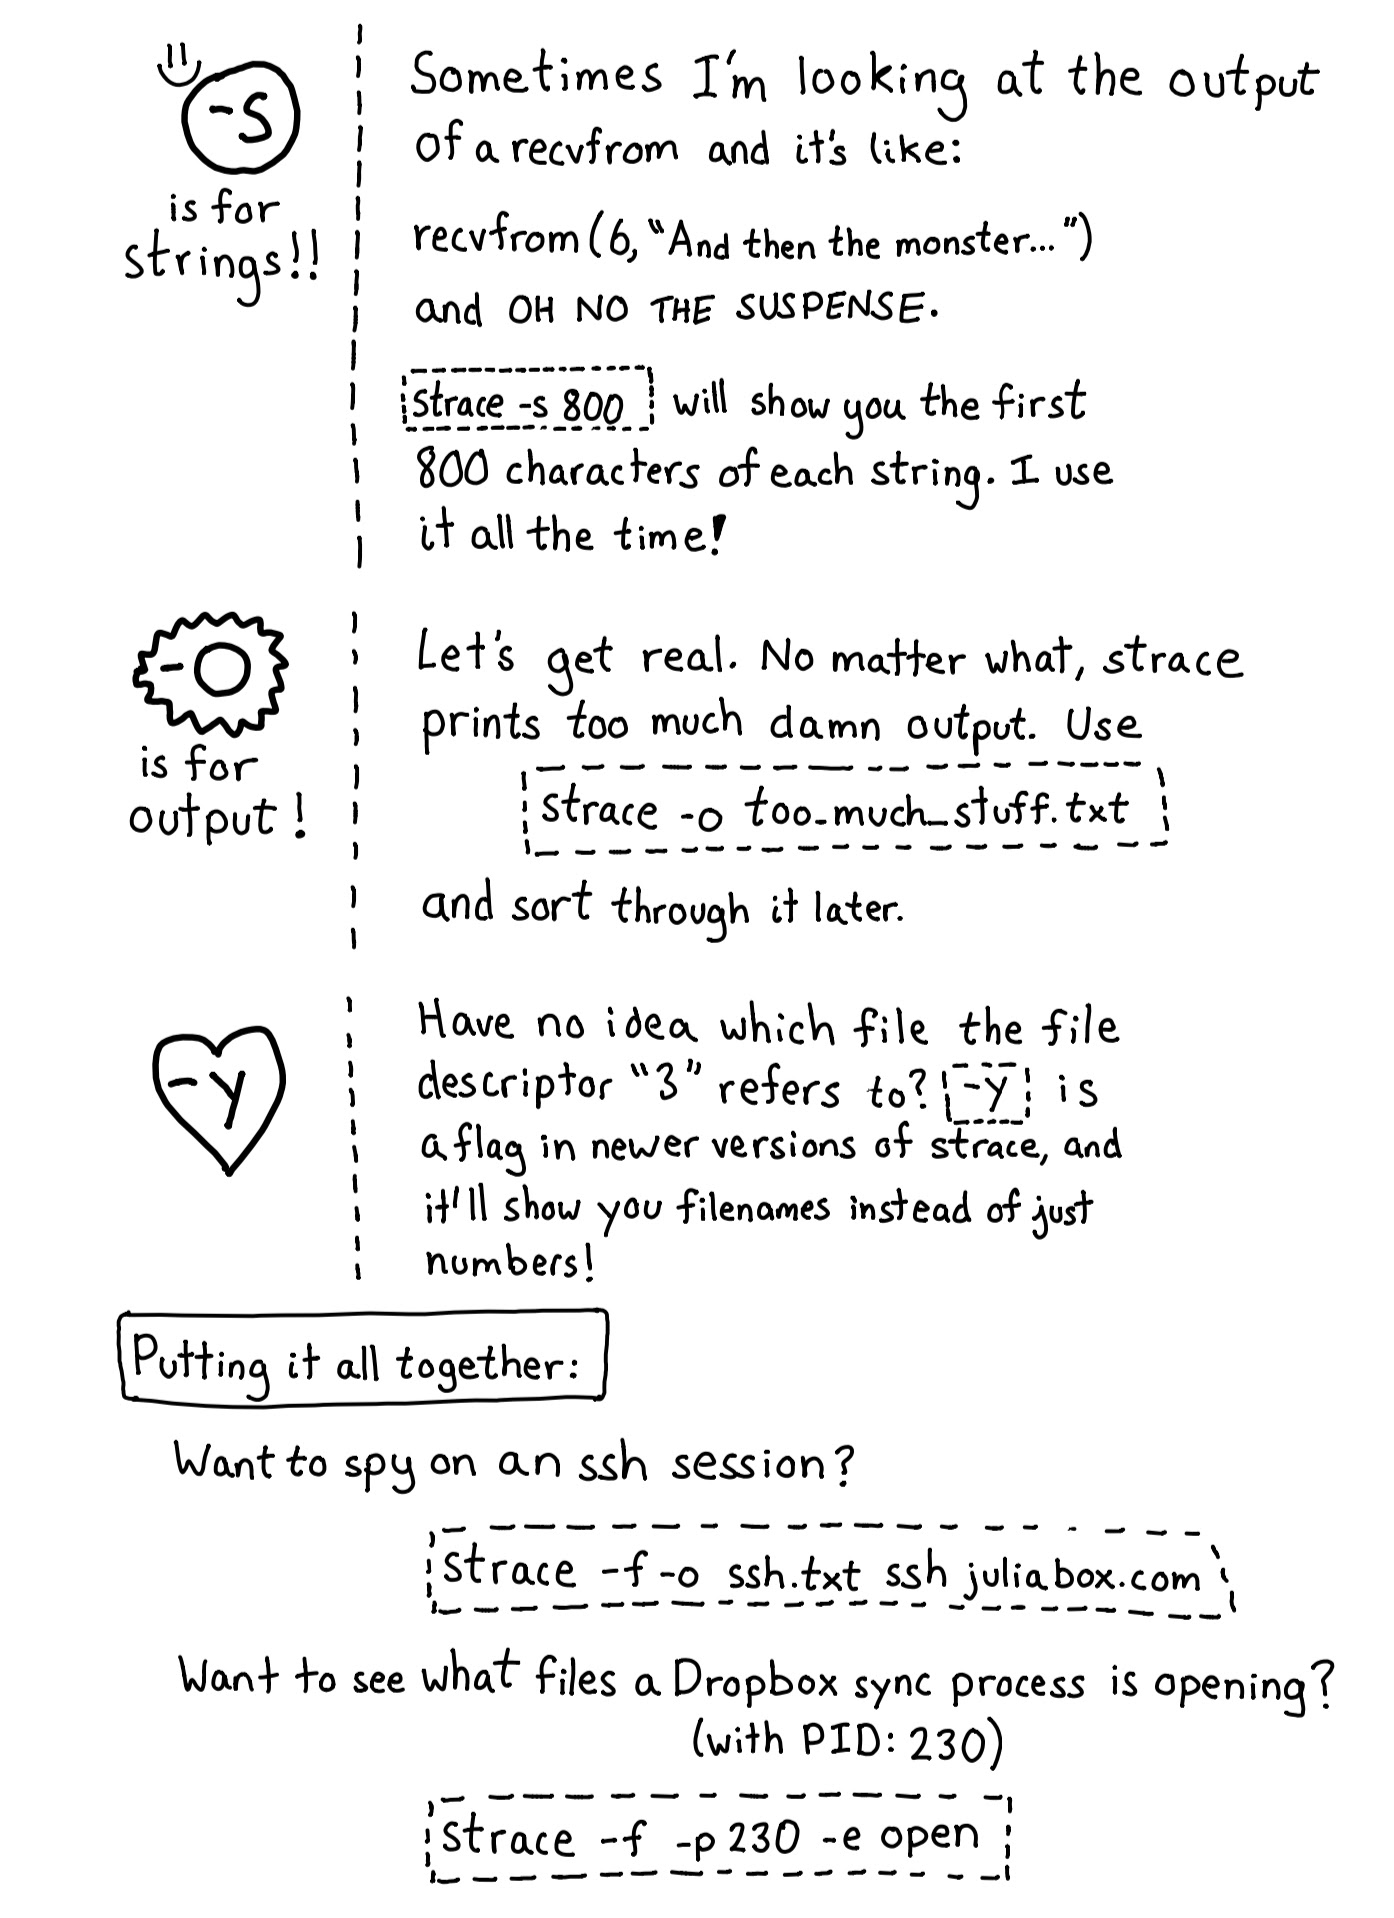 -s
is for
strings!!
Sometimes I'm looking at the output
of a recvfrom and it's like:
recvfrom(6, "And then the monster...")
and OH NO THE SUSPENSE.
strace -s 800 will show you the first
800 characters of each string. I use
it all the time!
-o
is for
output!
Let's get real. No matter what, strace
prints too much damn output. Use
strace -o too_much_stuff.txt
and sort through it later.
-y
Have no idea which file the file
descriptor "3" refers to? -y is
a flag in newer versions of strace, and
it'll show you filenames instead of just
numbers!
Putting it all together:
Want to spy on an ssh session?
strace -f -o ssh.txt ssh juliabox.com
Want to see what files a Dropbox sync process is opening?
(with PID: 230)
strace -f -p 230 -e open